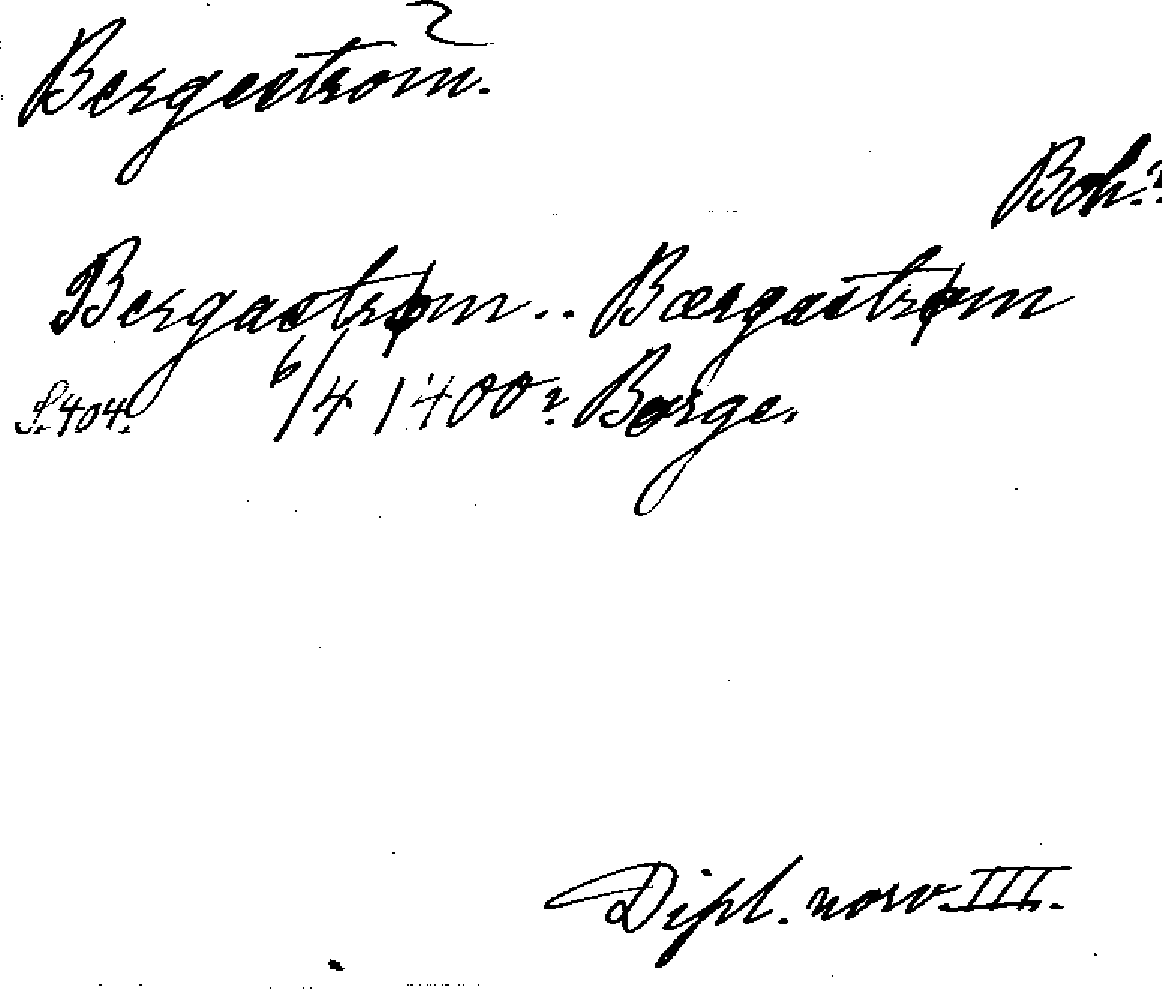 Bergeström.
Boh:n
Bergastrøm.. Bærgastrøm
S. 404. 6/4 1400. Borge.
Dipl. norv. III.